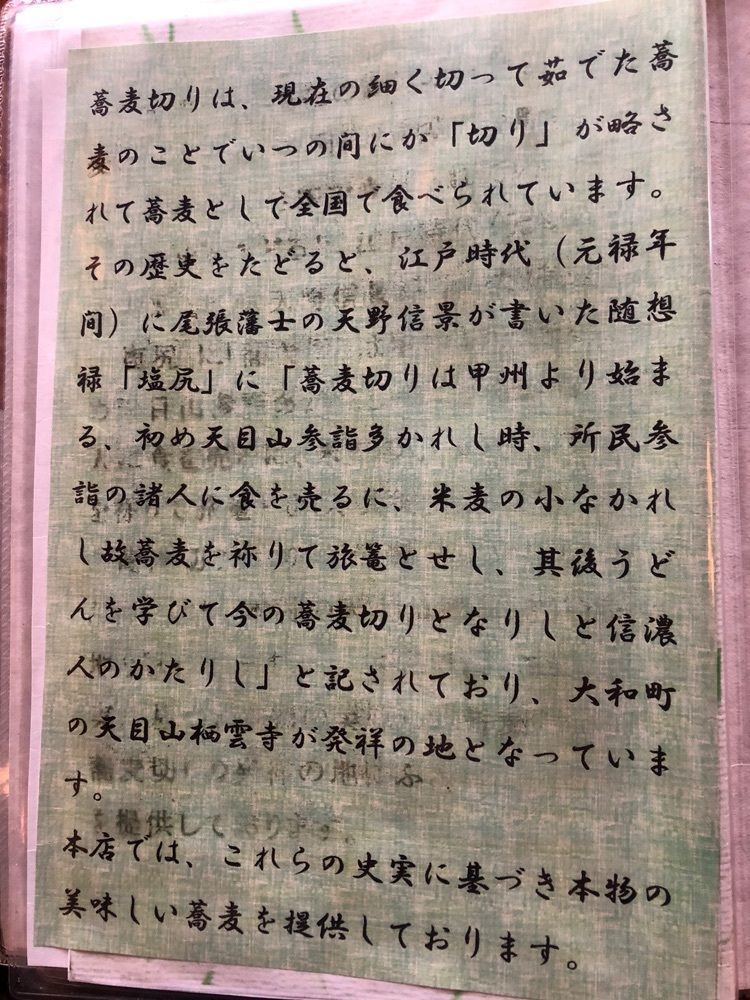 蕎麦切りは、現在の細く切って茹でた蕎
麦のことでいつの間にか「切り」が略さ
れて蕎麦として全国で食べられています。
その歴史をたどると、江戸時代（元禄年
間）に尾張藩士の天野信景が書いた随想
禄「塩尻」に「蕎麦切りは甲州より始ま
る、初め天目山参詣多かれし時、所民参
詣の諸人に食を売るに、米麦の小なかれ
し故蕎麦を祢りて旅篭とせし、其後うど
んを学びて今の蕎麦切りとなりしと信濃
人のかたりし」と記されており、大和町
の天目山栖雲寺が発祥の地となっていま
す。
本店では、これらの史実に基づき本物の
美味しい蕎麦を提供しております。